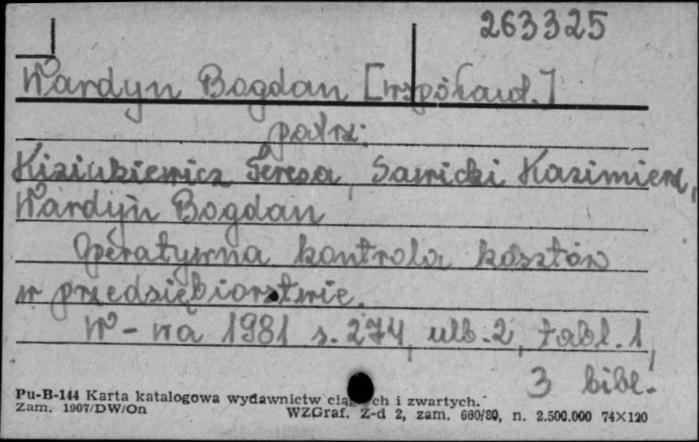 263325
Wardyn Bogdan [współaut.]
patrz:
Kiziukiewicz Teresa, Sawicki Kazimierz,
Wardyn Bogdan
Operatywna kontrola kosztów
w przedsiębiorstwie.
W-wa 1981 s. 274, ulb. 2, tabl. 1,
3 bibl.
Pu-B-144 Karta katalogowa wydawnictw ciągłych i zwartych.
Zam. 1907/DW/On WZGraf. Z-d 2, zam. 660/80, n. 2.500.000 74×120